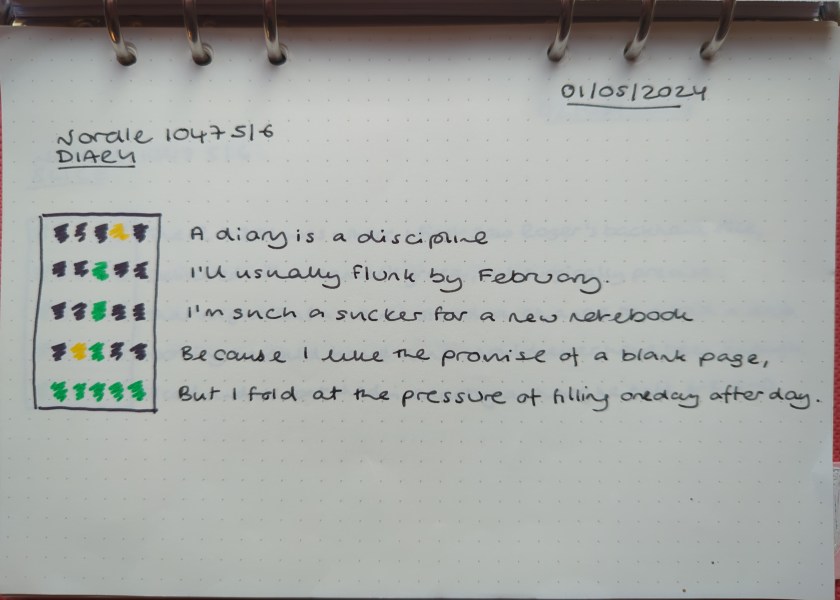 01/05/2024
Wordle 1047 5/6
DIARY
A diary is a discipline
I'll usually flunk by February.
I'm such a sucker for a new notebook
Because I like the promise of a blank page,
But I fold at the pressure of filling one day after day.